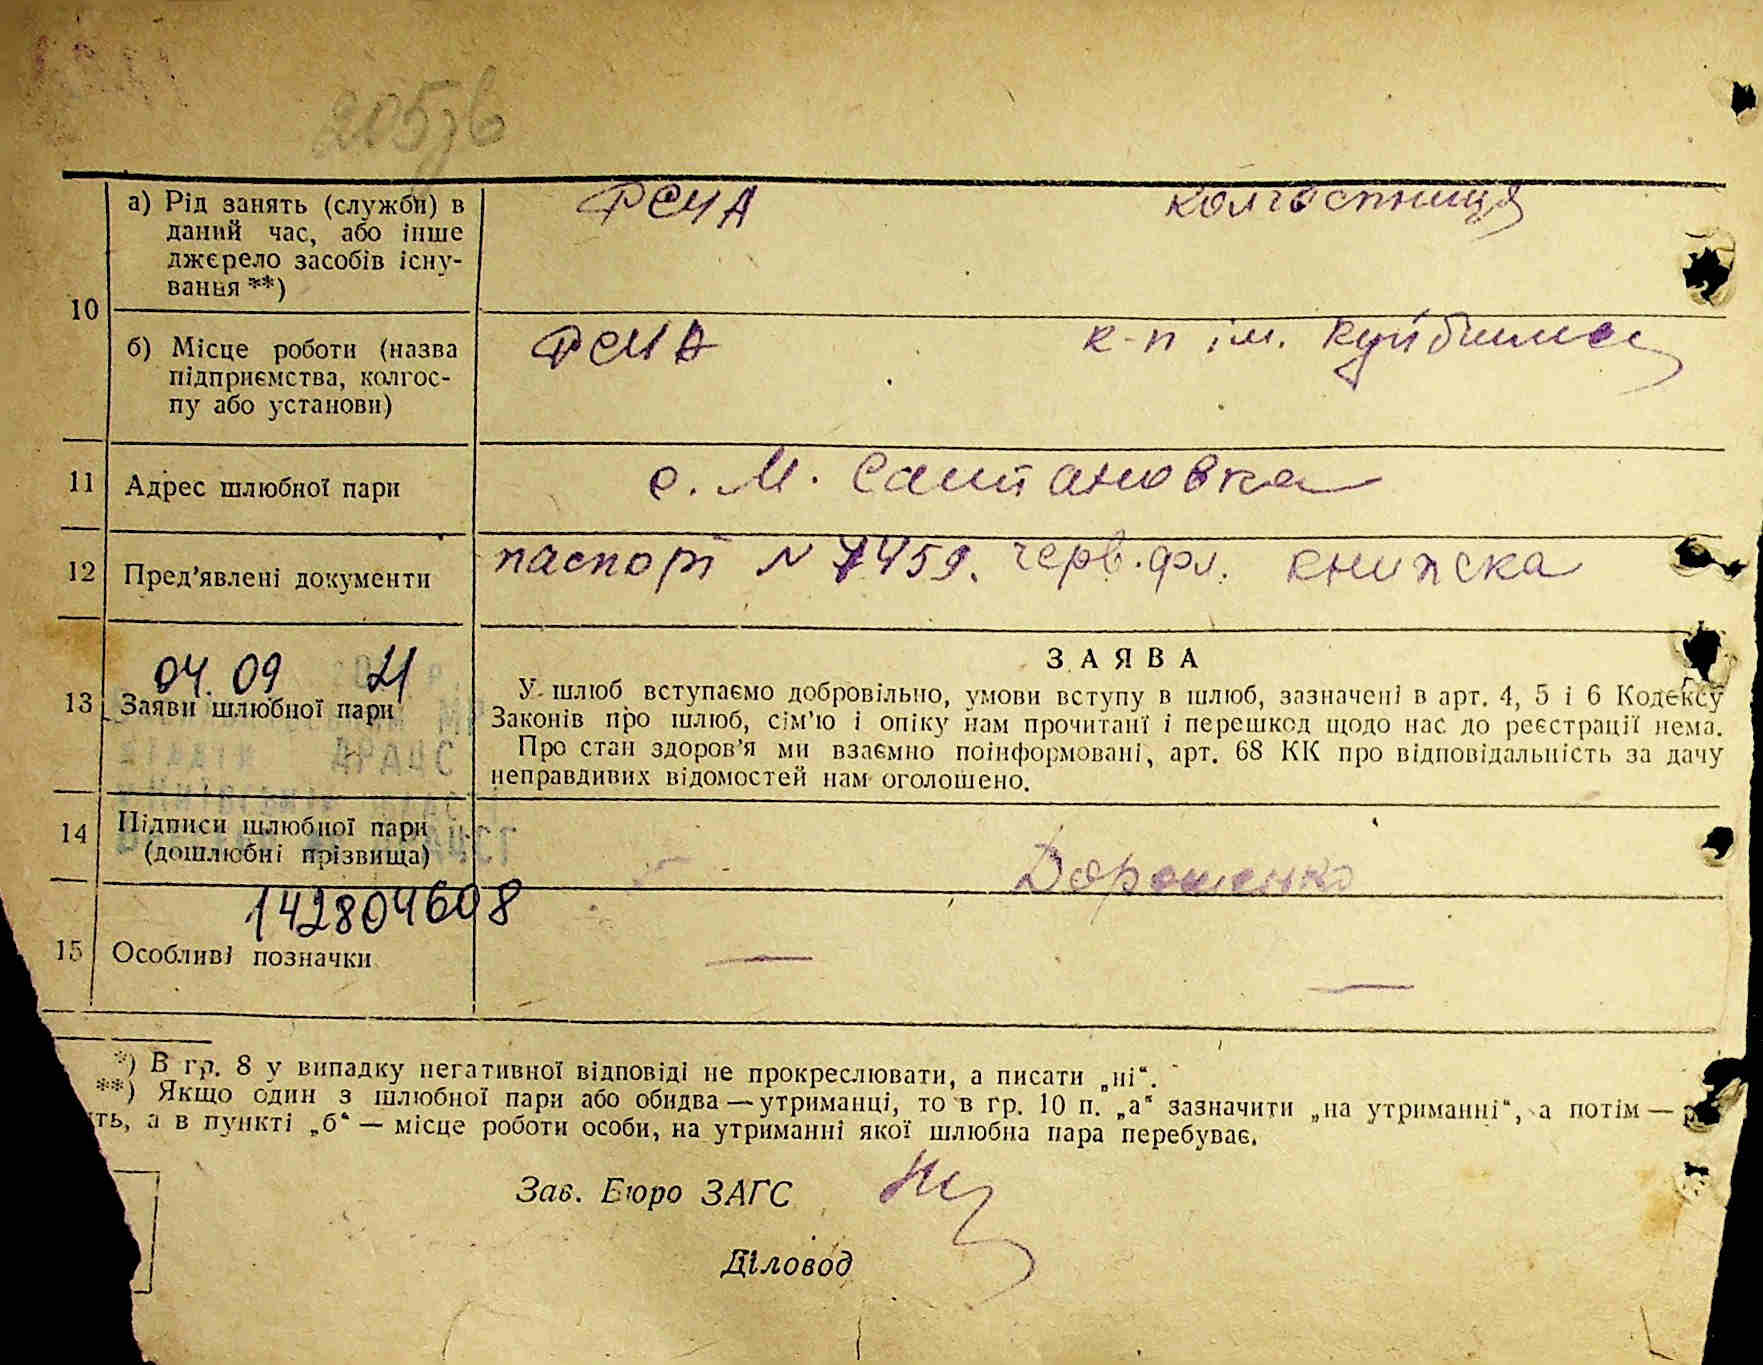 205зв
10
а) Рід занять (служби) в
даний час, або інше
джерело засобів існу-
вання **)
РСЧА
колгоспниця
б) Місце роботи (назва
підприємства, колгос-
пу або установи)
РСЧА
к-п ім. Куйбишева
11
Адрес шлюбної пари
с. М. Салтановка
12
Пред’явлені документи
паспорт N 7459. черв.фл. книжка
04.09 21
13
Заяви шлюбної пари
ЗАЯВА
У шлюб вступаємо добровільно, умови вступу в шлюб, зазначені в арт. 4, 5 і 6 Кодексу
Законів про шлюб, сім’ю і опіку нам прочитані і перешкод щодо нас до реєстрації нема.
Про стан здоров’я ми взаємно поінформовані, арт. 68 КК про відповідальність за дачу
неправдивих відомостей нам оголошено.
14
Підписи шлюбної пари
(дошлюбні прізвища)
Дорошенко
142804608
15
Особливі позначки
— —
*) В гр. 8 у випадку негативної відповіді не прокреслювати, а писати „ні“.
**) Якщо один з шлюбної пари або обидва — утриманці, то в гр. 10 п. „а“ зазначити „на утриманні“, а потім —
ть, а в пункті „б“ — місце роботи особи, на утриманні якої шлюбна пара перебуває.
Зав. Бюро ЗАГС
Діловод